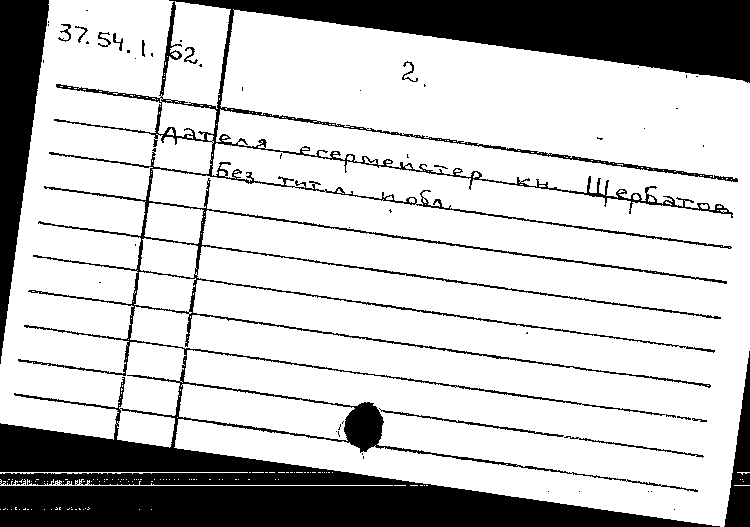 37.54.1.62.
2.
дателя, егермейстер кн. Щербатов
Без тит. л. и обл.